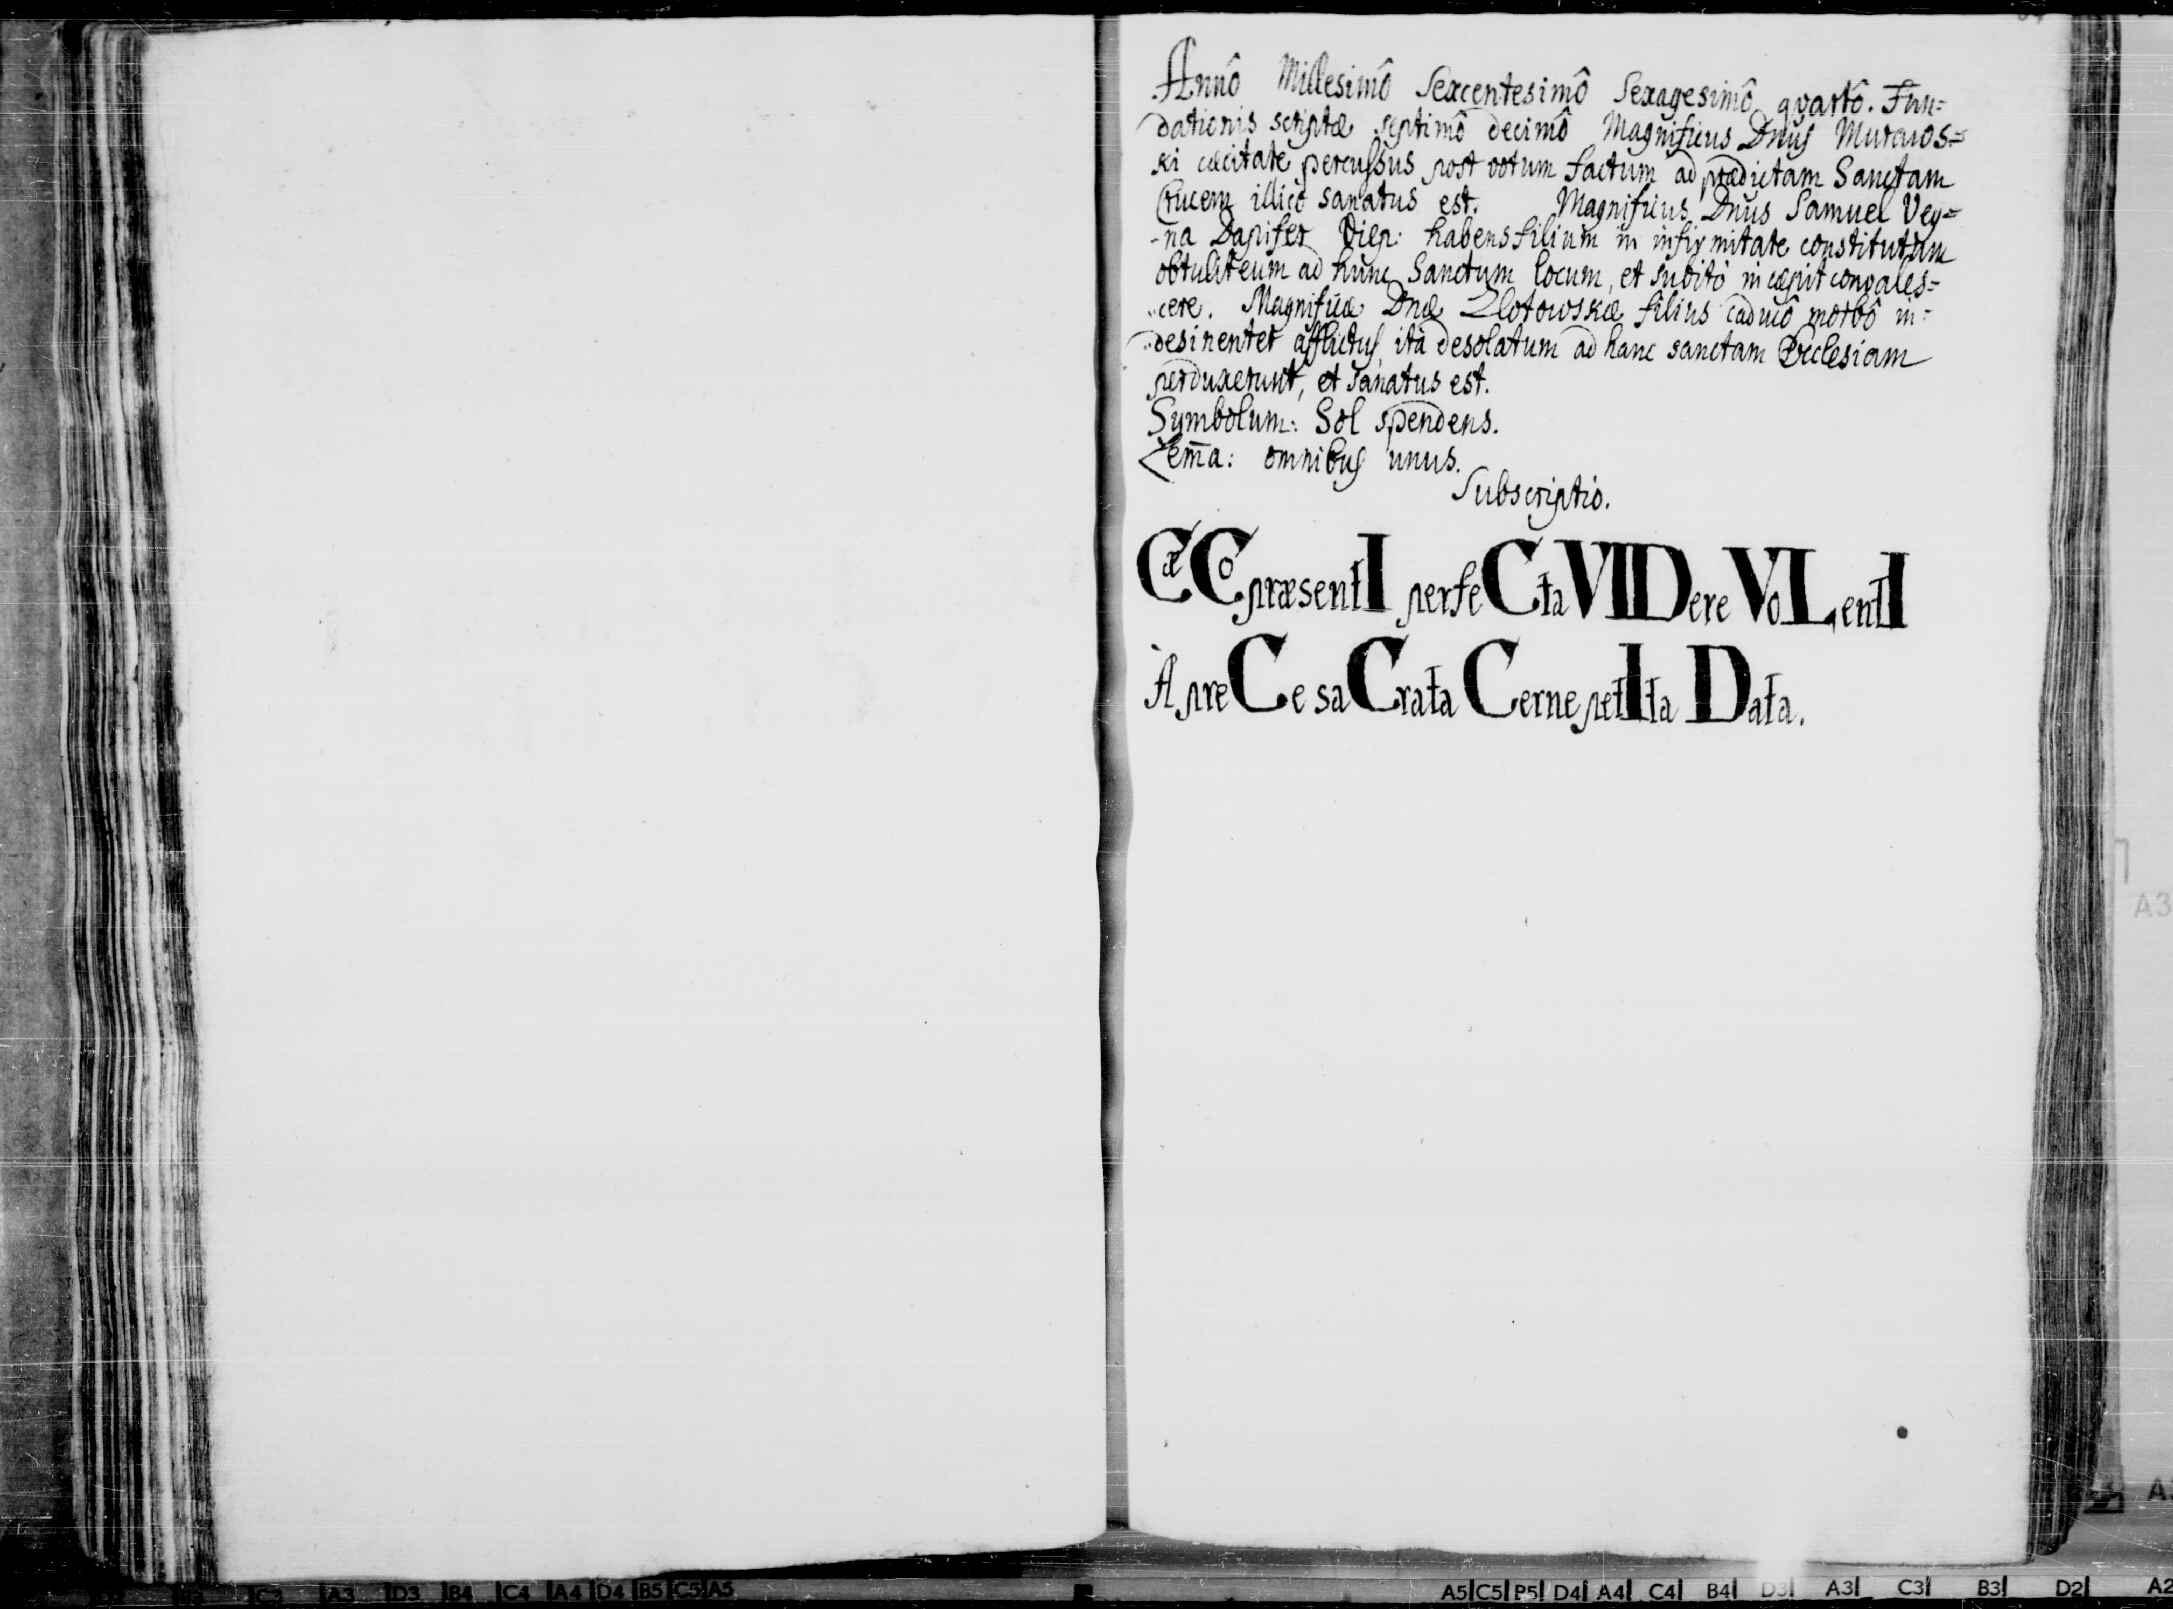 Annô Millesimô Sexcentesimô Sexagesimô qvartô. Fun=
dationis scriptæ septimô decimô Magnificus Dnus
ki cæcitate percussus post votum factum ad prædictam Sanctam
Crucem illicô sanatus est. Magnificus Dnus Samuel Vey=
-na Dapifer habens filium in infirmitate constitutum
obtulit eum ad hunc Sanctum locum, et subitò in cæpit convales=
-cere. Magnificæ Dnæ Zlotowskæ filius caducô morbô in=
-desinenter afflictus, ità desolatum ad hanc sanctam Ecclesiam
perduxerunt, et sanatus est.
Symbolum: Sol spendens.
Lem̄a: omnibus unus.
Subscriptio.
CæCo præsentI perfeCta VIDere VoLentI
À preCe saCrata Cerne petIta Data.
A5 C5 B5 D4 A4 C4 B4 D3 A3 C3 B3 D2 A2
A3 D3 B4 C4 A4 D4 B5 C5 A5
A3